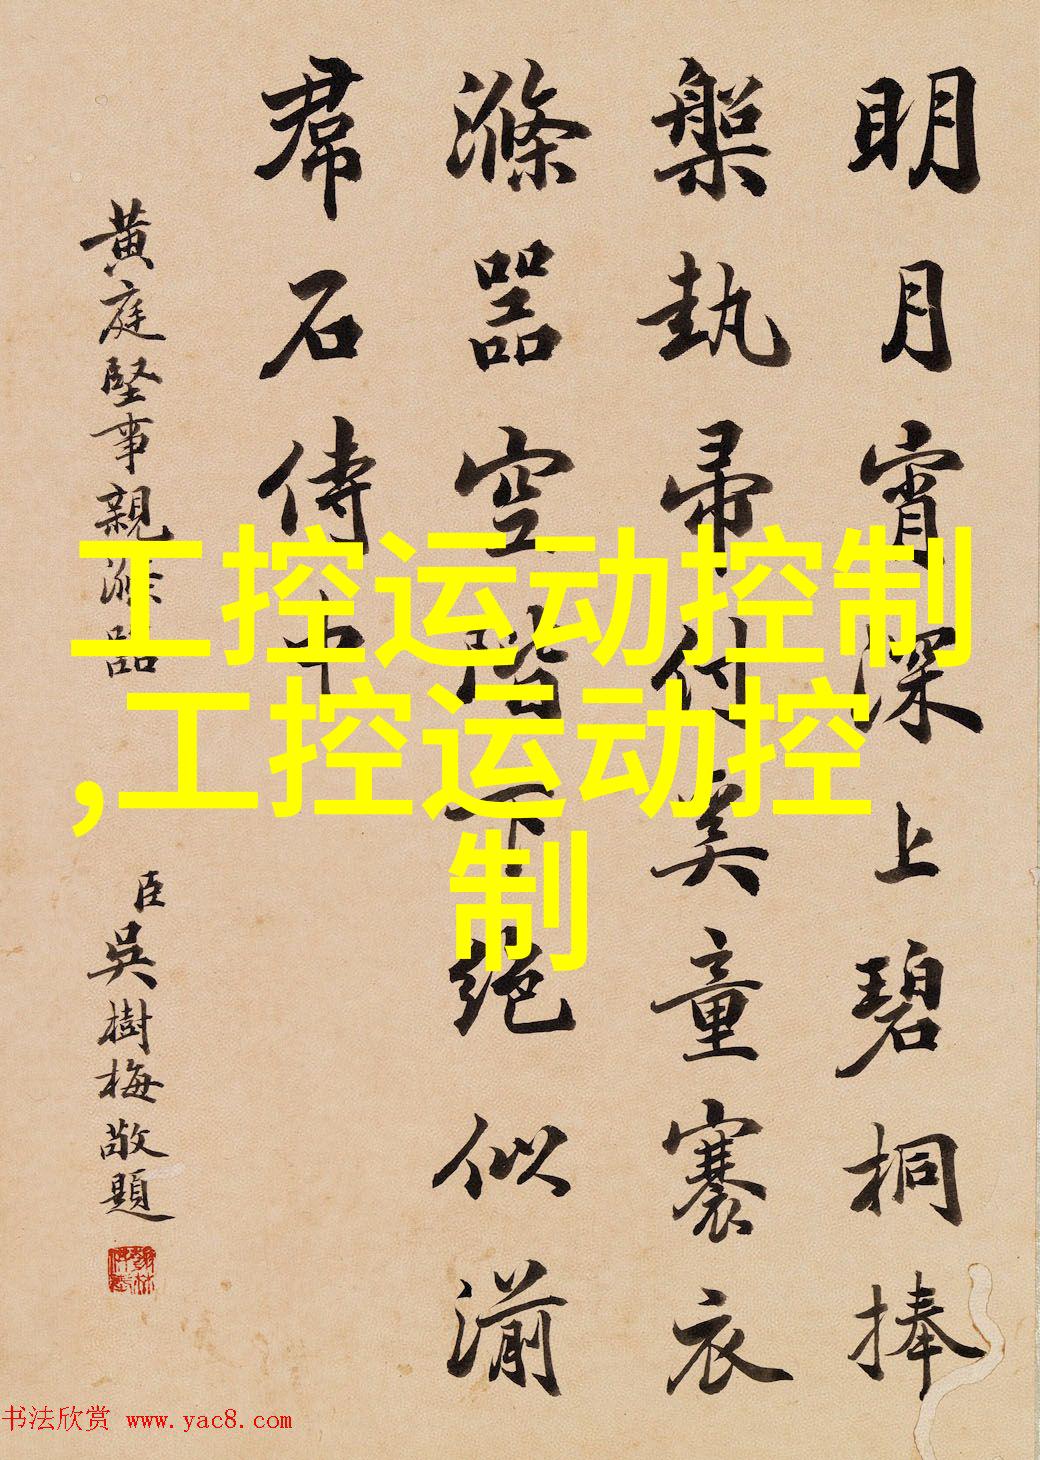 明月宵深上碧桐捧
槃執帚付奚童褰衣
滌器空階下絕似湔
帬石侍中
黃庭堅事親滌器
臣吳樹梅敬題
工控运动控制
,工控运动控
制
书法欣赏 www.yac8.com